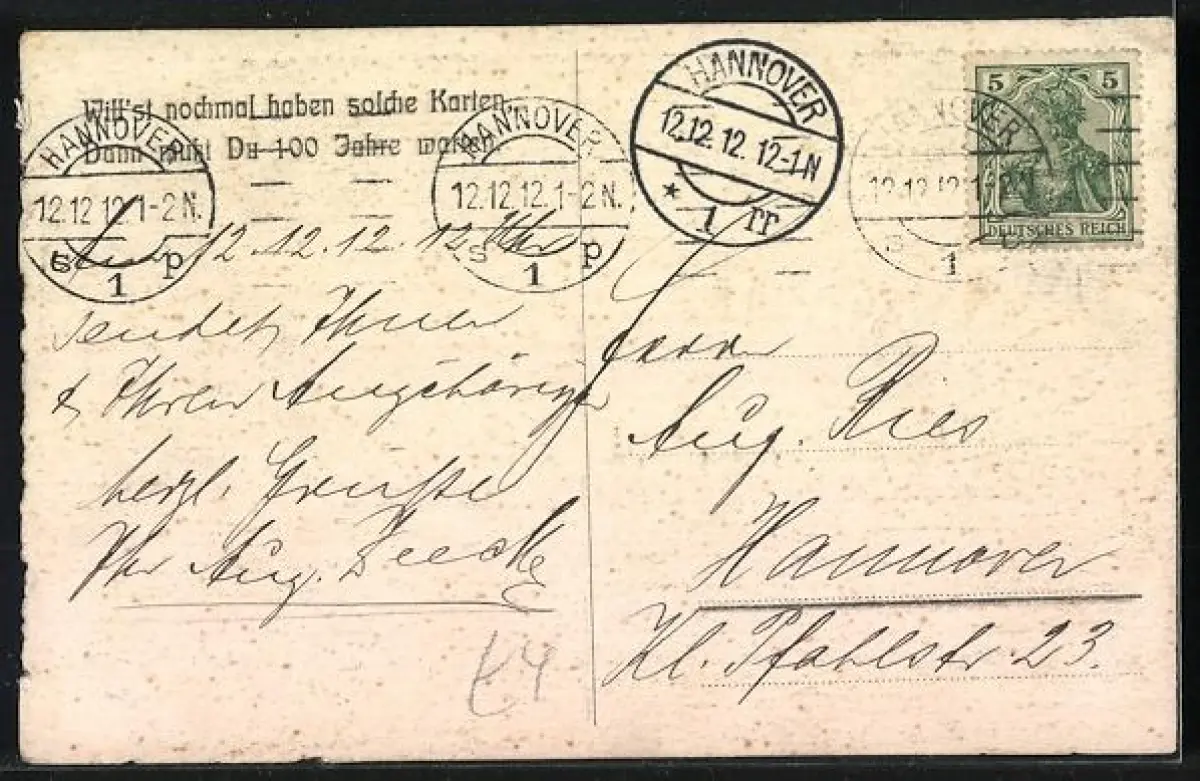 Will'st nochmal haben solche Karten,
Dann mußt Du 100 Jahre warten.
HANNOVER
12.12.12.1-2N.
S 1 p
HANNOVER
12.12.12.1-2N.
S 1 p
HANNOVER
12.12.12.12-1N
* 1 rr
HANNOVER
12.12.12.1-2N.
S 1
5 5
DEUTSCHES REICH
12.12.12. 12 Uhr
sendet Ihnen
& Ihren Angehörigen
herzl. Grüsse
Ihr Aug.
Herrn
Aug. Ries
Hannover
Kl. Pfahlstr. 23.